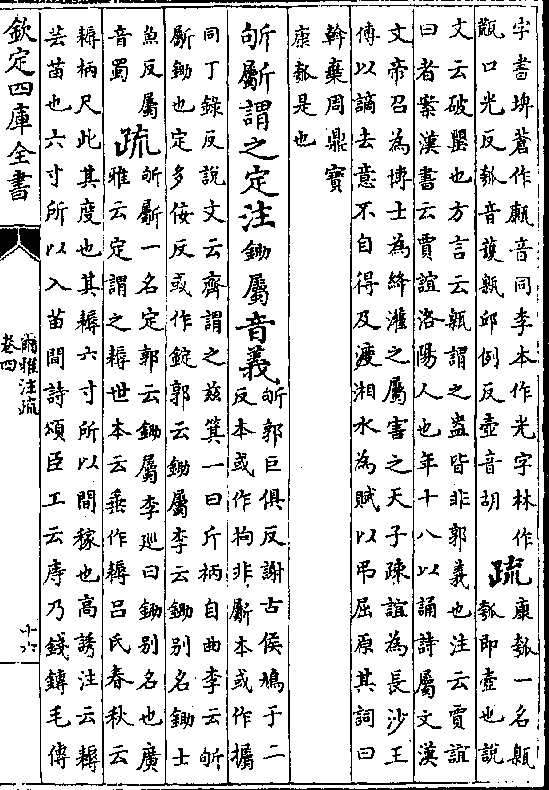 字書埤蒼作音同李本作光字林作
口光反瓠音護甈邱例反壺音胡
疏
康瓠一名甈
瓠即壺也說
文云破罌也方言云甈謂之盎皆非郭義也注云賈誼
曰者案漢書云賈誼洛陽人也年十八以誦詩屬文漢
文帝召為博士為絳灌之屬害之天子疎誼為長沙王
傅以謫去意不自得及渡湘水為賦以弔屈原其詞曰
斡棄周鼎寳
康瓠是也
斪斸謂之定注鋤屬音義
斪郭巨俱反謝古侯鳩于二
反本或作拘非斸本或作欘
同丁錄反說文云齊謂之兹箕一曰斤柄自曲李云斪
斸鋤也定多佞反或作錠郭云鋤屬李云鋤别名鋤士
魚反屬
音蜀
疏
斪斸一名定郭云鋤屬李廵曰鋤别名也廣
雅云定謂之耨世本云垂作耨吕氏春秋云
耨柄尺此其度也其耨六寸所以間稼也高誘注云耨
芸苗也六寸所以入苗間詩頌臣工云庤乃錢鎛毛傳
欽定四庫全書
爾雅注疏
卷四
十六